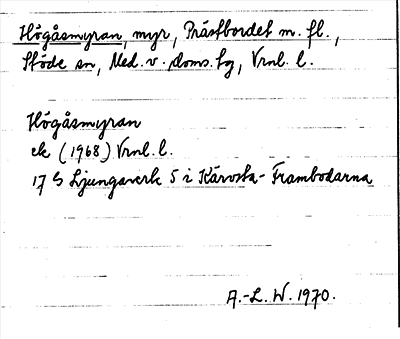 Högåsmyran, myr, Prästbordet m. fl.,
Stöde sn, Med. v. doms. fg, Vrnl. l.
Högåsmyran
ek (1968) Vrnl. l.
17 G Ljungaverk 5 i Kärvsta - Frambodarna
A.-L. W. 1970.